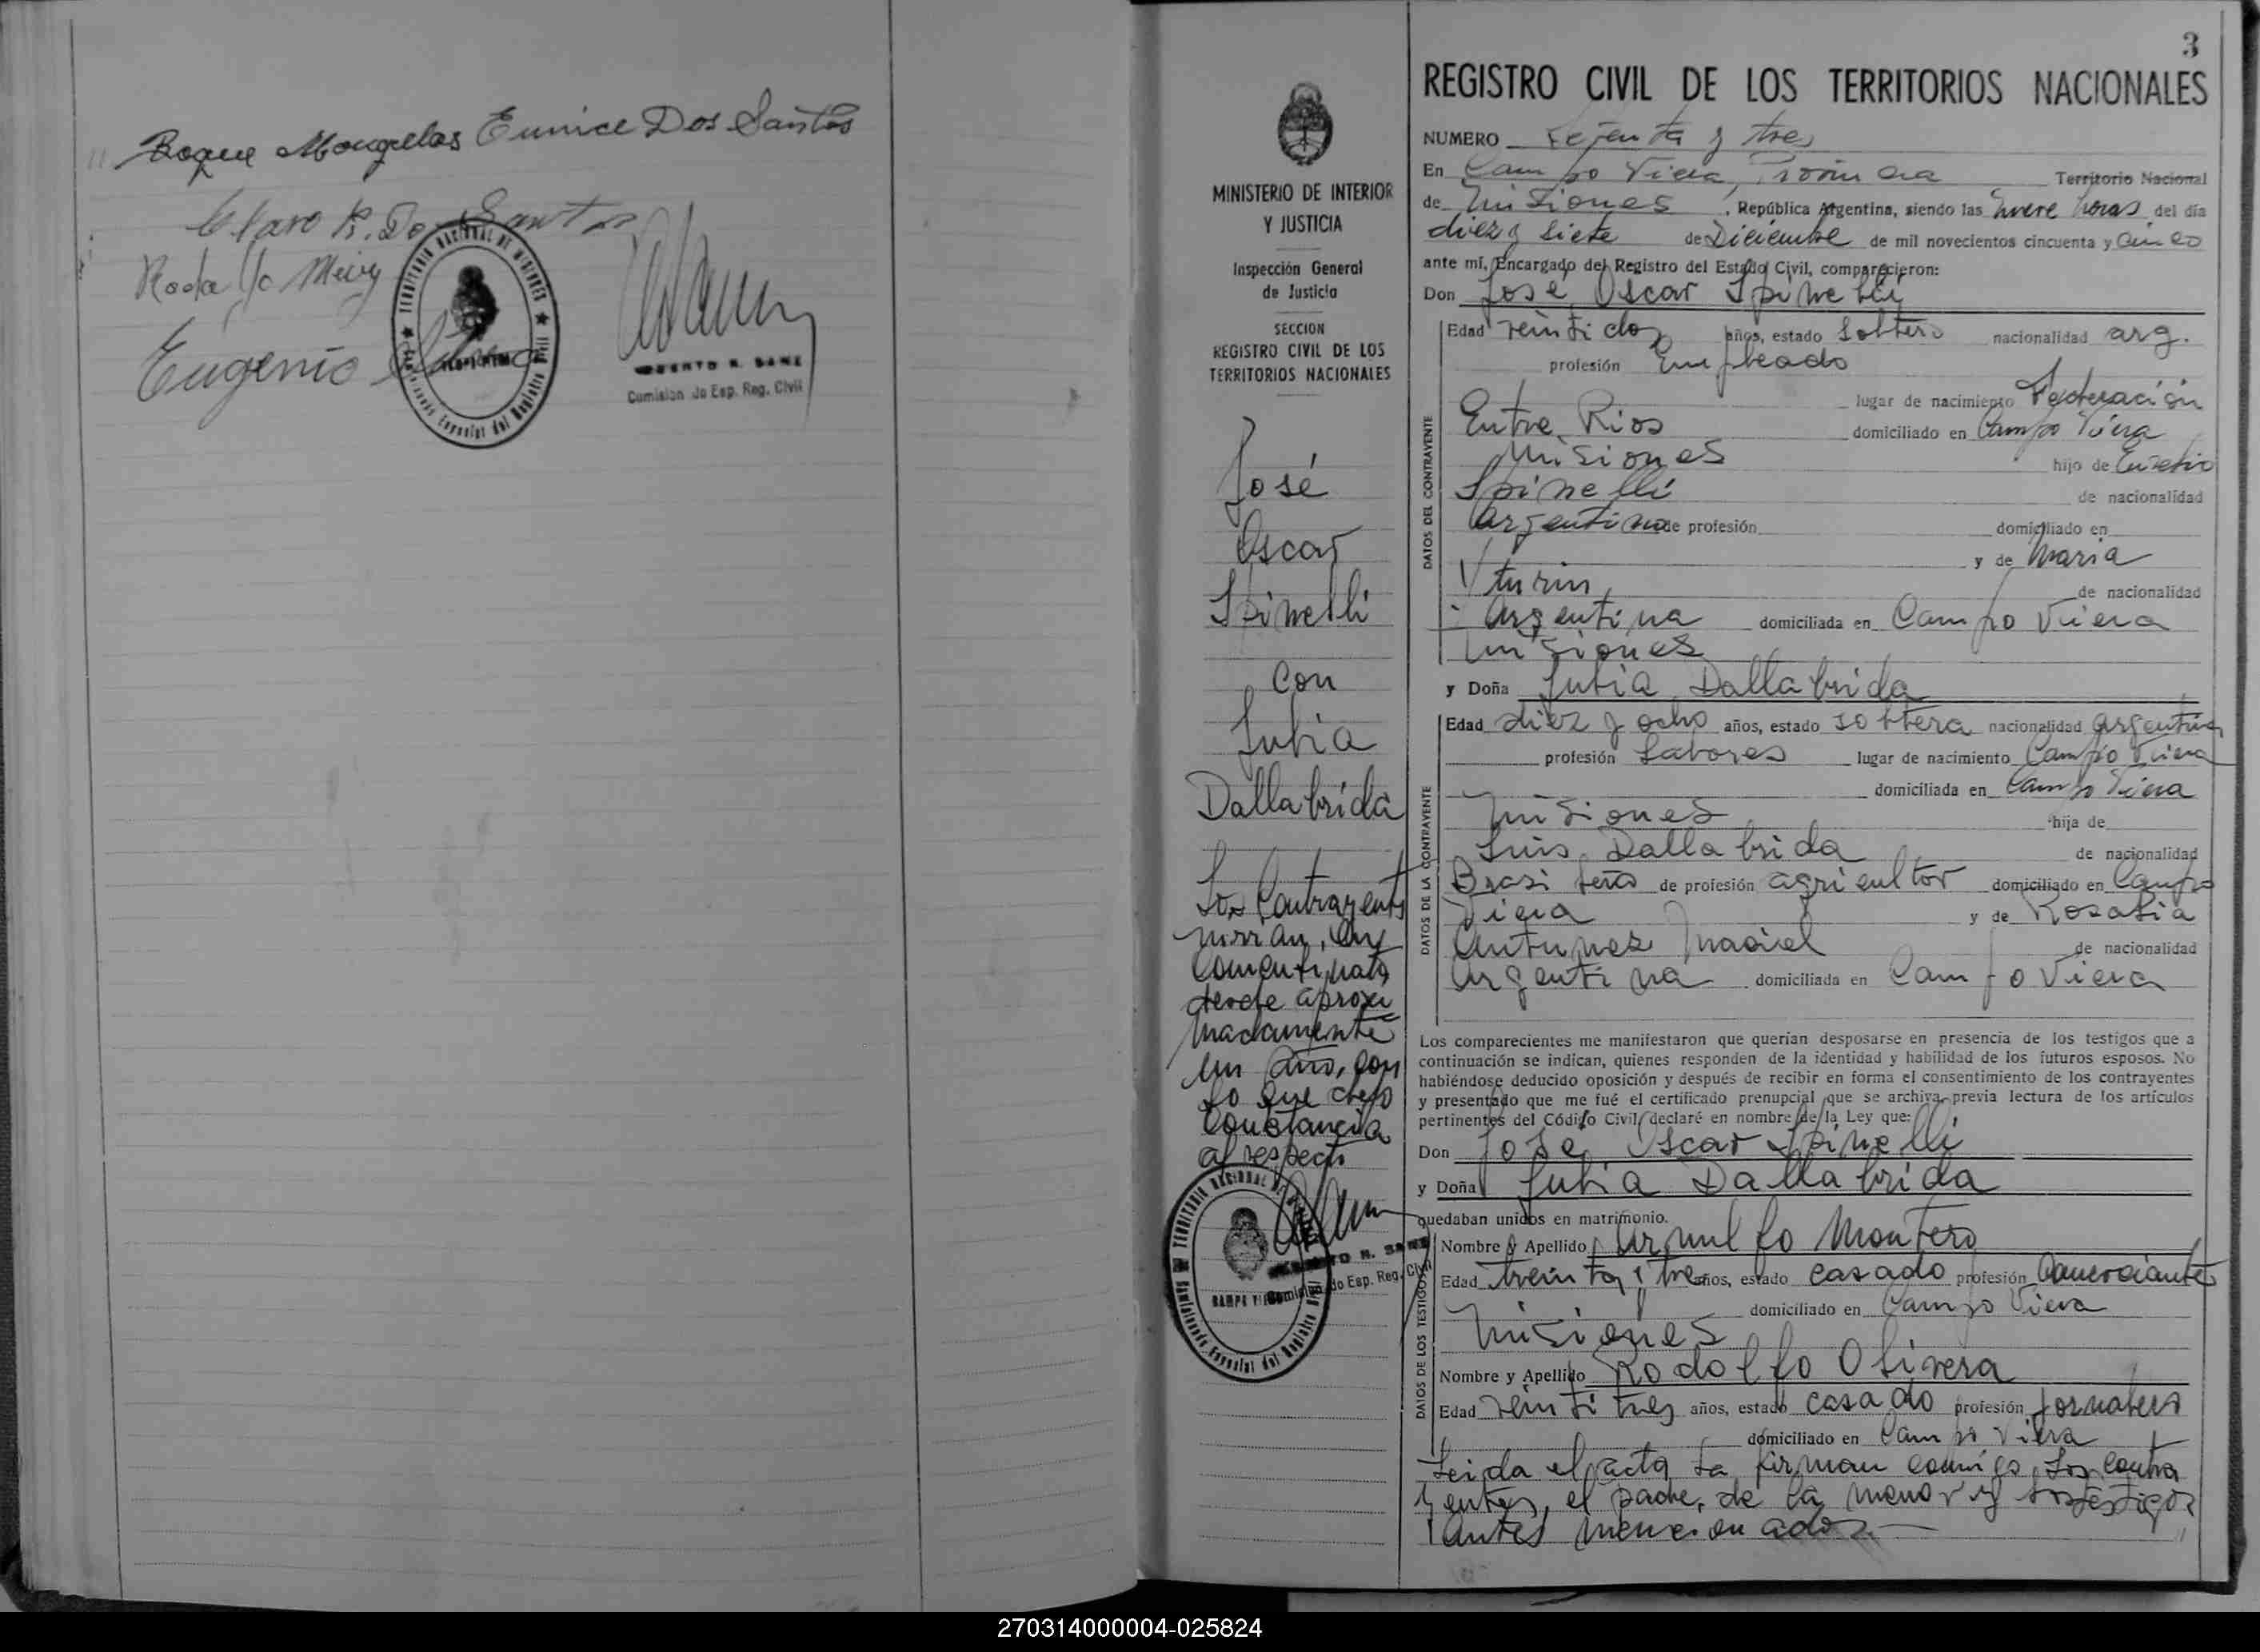 Roque Mongelos Eunice Dos Santos
Claro R. Dos Santos
Rodolfo Meiy
Eugenio
TERRITORIO NACIONAL DE MISIONES
R. SANZ
Comision do Esp. Reg. Civil
3
MINISTERIO DE INTERIOR
Y JUSTICIA
Inspección General
de Justicia
SECCION
REGISTRO CIVIL DE LOS
TERRITORIOS NACIONALES
José
Oscar
Spinelli
Con
Julia
Dallabrida
Los Contrayentes
vivian, en
Concubinato
desde aproxi
madamente
un año, con
lo que dejo
Constancia
al respecto
TERRITORIO NACIONAL DE
CAMPO VIERA
R. SANZ
do Esp. Reg. Civil
REGISTRO CIVIL DE LOS TERRITORIOS NACIONALES
NUMERO Setenta y tres
En Campo Viera, Provincia Territorio Nacional
de Misiones, República Argentina, siendo las nueve horas del día
diez y siete de Diciembre de mil novecientos cincuenta y cinco
ante mí, Encargado del Registro del Estado Civil, comparecieron:
Don José Oscar Spinelli
DATOS DEL CONTRAYENTE
Edad veinti dos años, estado soltero nacionalidad arg.
profesión Empleado
lugar de nacimiento Federación
Entre Rios domiciliado en Campo Viera
Misiones hijo de Eusebio
Spinelli de nacionalidad
argentino de profesión domiciliado en
y de Maria
Vturin, de nacionalidad
Argentina domiciliada en Campo Viera
Misiones
y Doña Julia Dallabrida
DATOS DE LA CONTRAYENTE
Edad diez y ocho años, estado soltera nacionalidad argentina
profesión Labores lugar de nacimiento Campo Viera
domiciliada en Campo Viera
Misiones hija de
Luis Dallabrida de nacionalidad
Brasileño de profesión agricultor domiciliado en Campo
Viera y de Rosalia
Antunez Maciel de nacionalidad
Argentina domiciliada en Campo Viera
Los comparecientes me manifestaron que querían desposarse en presencia de los testigos que a
continuación se indican, quienes responden de la identidad y habilidad de los futuros esposos. No
habiéndose deducido oposición y después de recibir en forma el consentimiento de los contrayentes
y presentado que me fué el certificado prenupcial que se archiva, previa lectura de los artículos
pertinentes del Código Civil, declaré en nombre de la Ley que:
Don José Oscar Spinelli
y Doña Julia Dallabrida
quedaban unidos en matrimonio.
DATOS DE LOS TESTIGOS
Nombre y Apellido Arnulfo Montero
Edad treinta y tres años, estado casado profesión Comerciante
domiciliado en Campo Viera
Misiones
Nombre y Apellido Rodolfo Olivera
Edad veinti tres años, estado casado profesión jornalero
domiciliado en Campo Viera
Leida el acta la firman conmigo, los contra
yentes, el padre de la menor y los testigos
antes mencionados.
270314000004-025824